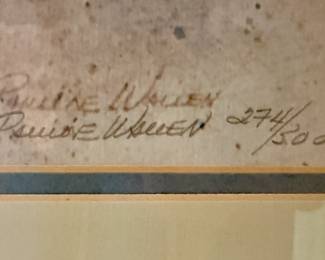 Pauline Wallen
Pauline Wallen 274/500